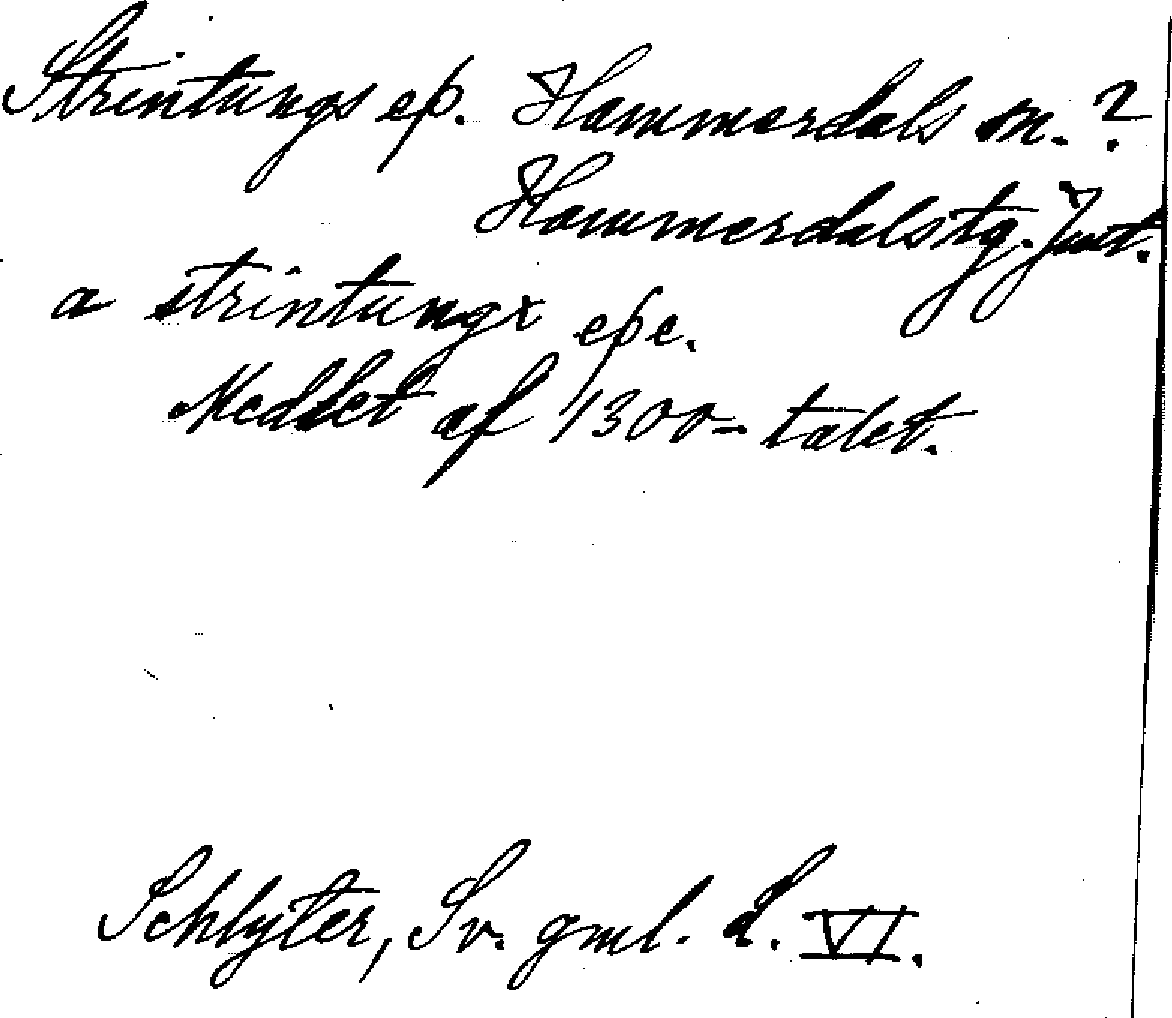 Strintungs ep. Hammerdals sn.?
Hammerdals tg. Jmt.
a strintungx epe.
Medlet af 1300-talet.
Schlyter, Sv. gml. L. VI.